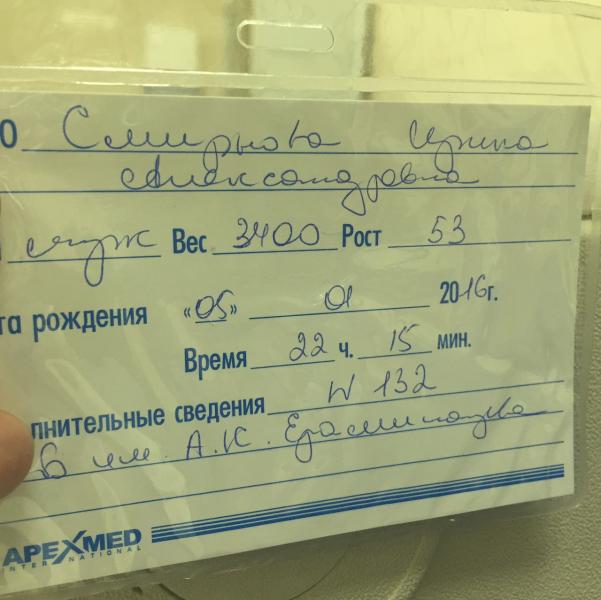 О Смирнова Ирина
Александровна
муж Вес 3400 Рост 53
та рождения «05» 01 2016г.
Время 22 ч. 15 мин.
лнительные сведения N 132
им. А.К. Ерамишанцева
APEXMED
INTERNATIONAL